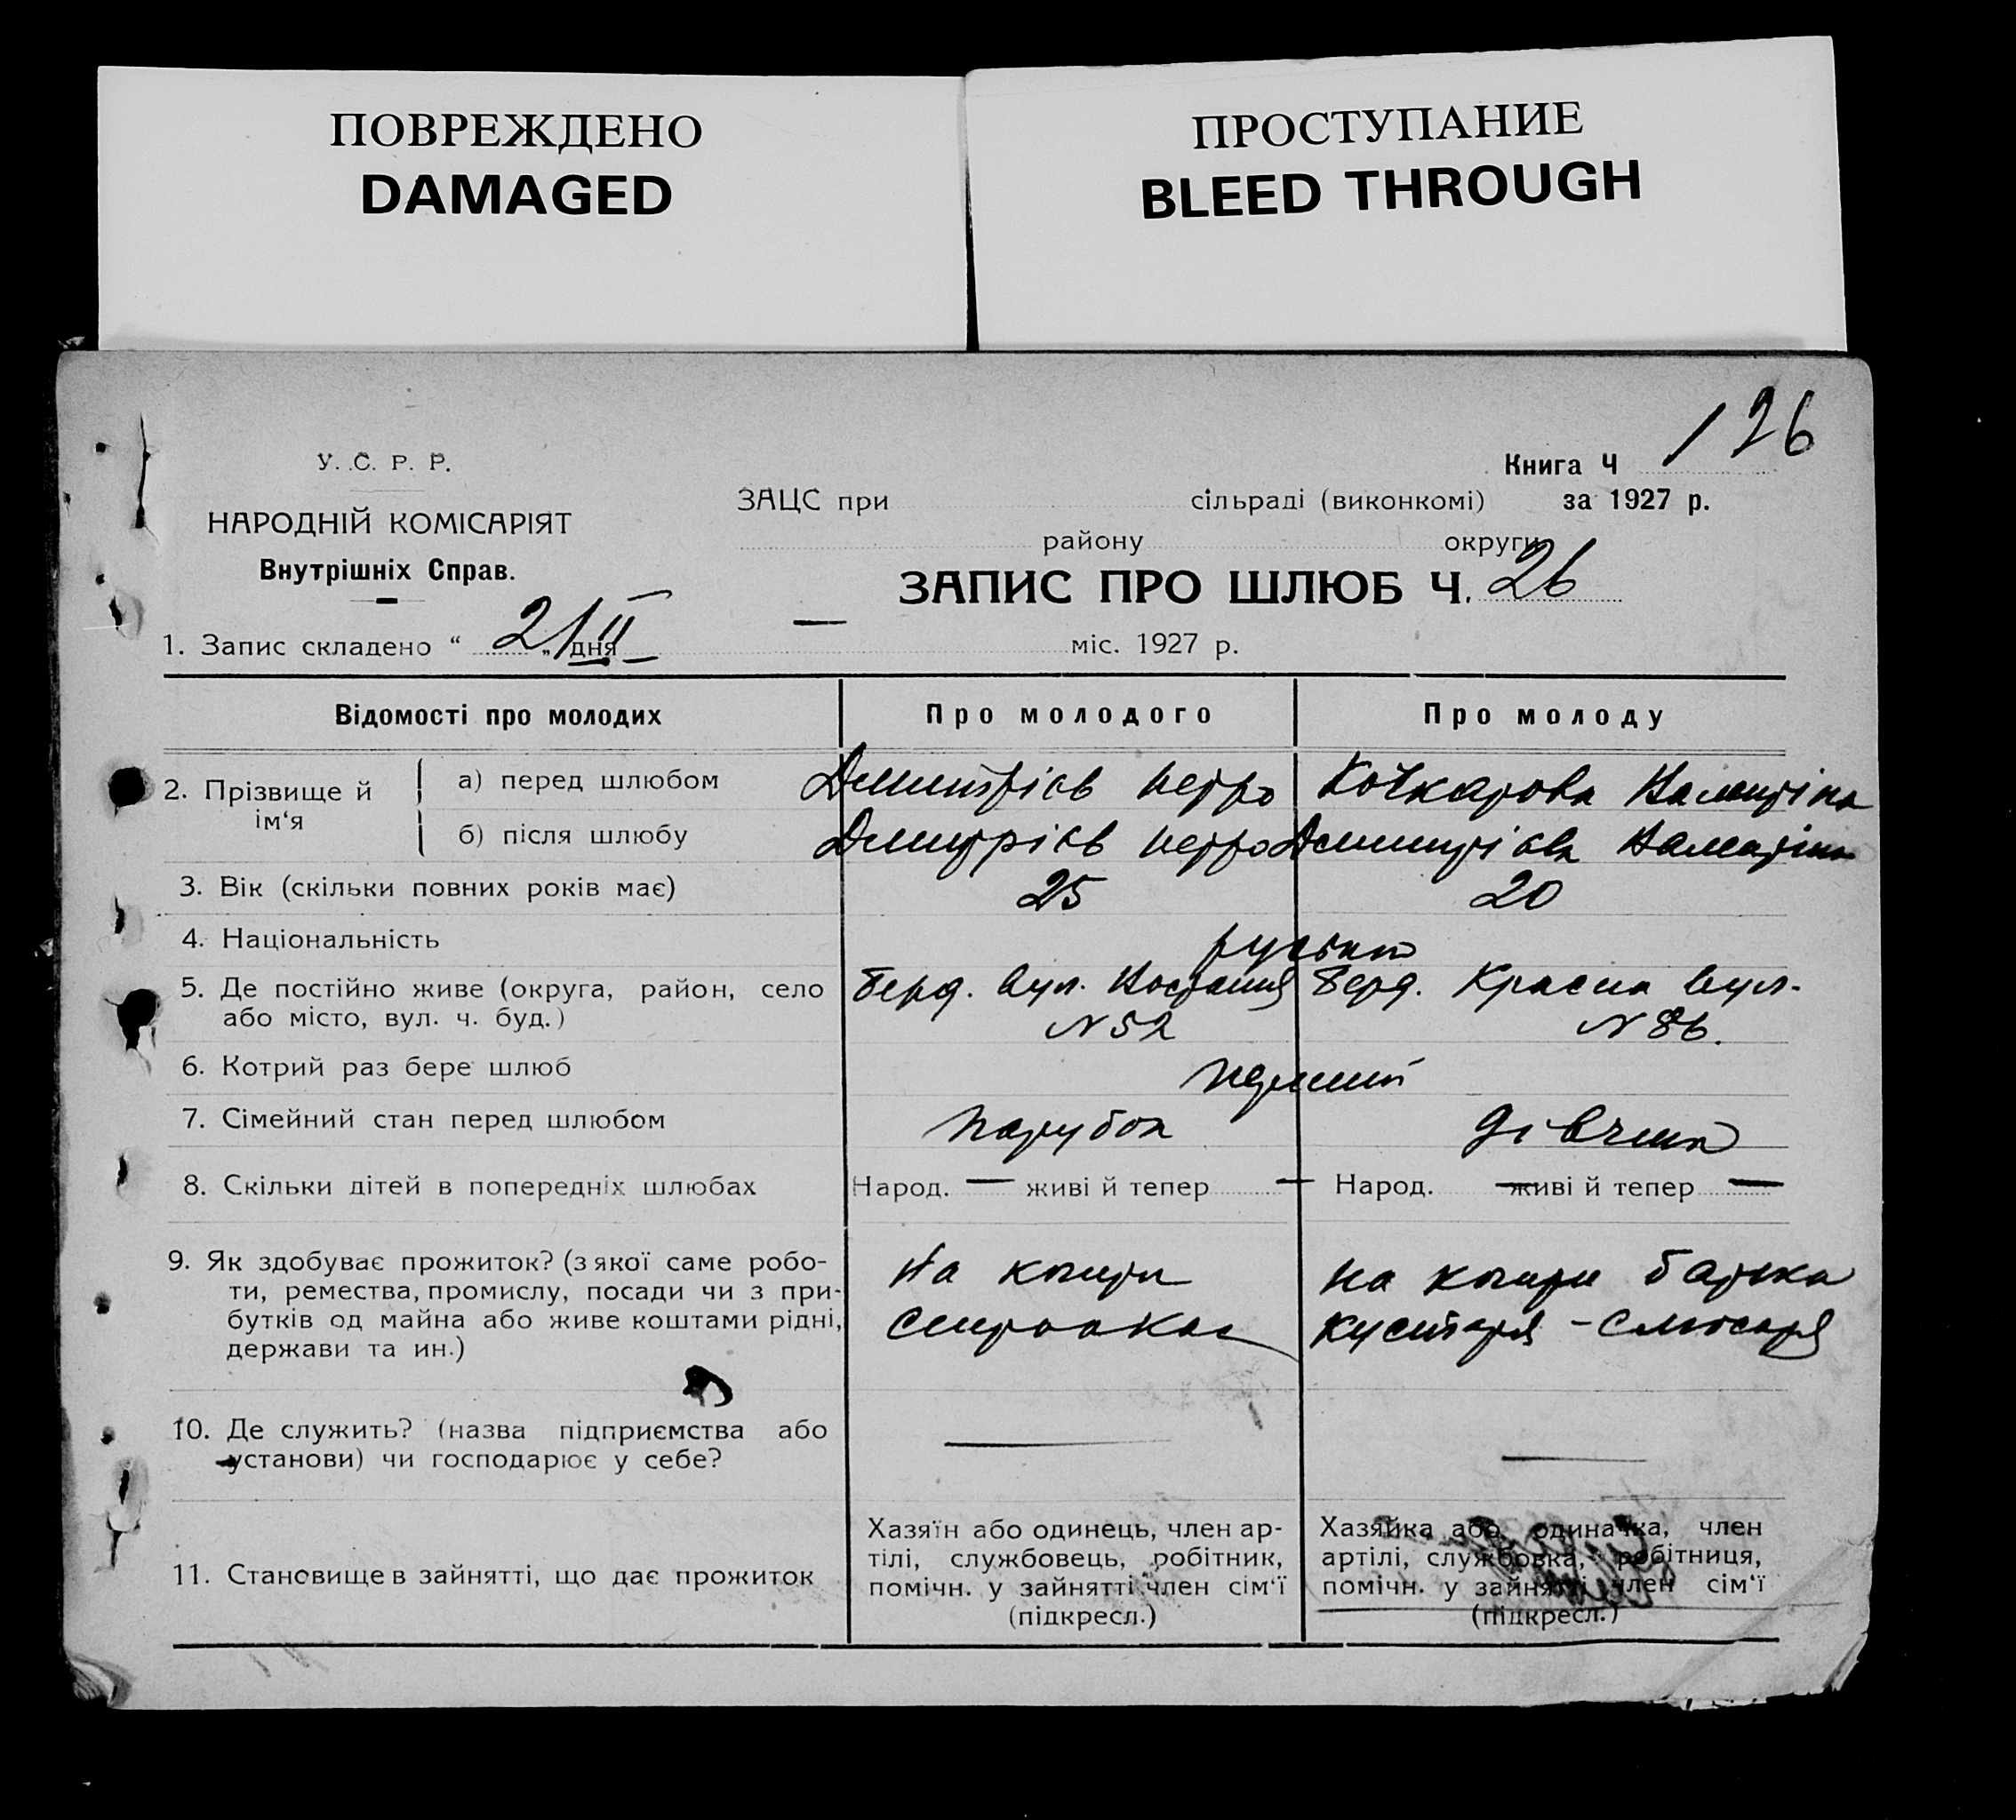 ПОВРЕЖДЕНО
DAMAGED
ПРОСТУПАНИЕ
BLEED THROUGH
126
У. С. Р. Р.
НАРОДНІЙ КОМІСАРІЯТ
Внутрішніх Справ.
Книга Ч
ЗАЦС при сільраді (виконкомі) за 1927 р.
району округи
ЗАПИС ПРО ШЛЮБ Ч. 26
1. Запис складено “ 21/II „ дня — міс. 1927 р.
Відомості про молодих Про молодого Про молоду
2. Прізвище й ім‘я
а) перед шлюбом Димитрієв Петро Кочкарова Валентіна
б) після шлюбу Дмитрієв Петро Димитрієва Валентіна
3. Вік (скільки повних років має) 25 20
4. Національність руський
5. Де постійно живе (округа, район, село Берд. вул. Берд. Красна вул.
або місто, вул. ч. буд.) N 52 N 86.
6. Котрий раз бере шлюб перший
7. Сімейний стан перед шлюбом парубок дівчина
8. Скільки дітей в попередніх шлюбах Народ. — живі й тепер — Народ. — живі й тепер —
9. Як здобуває прожиток? (з якої саме робо-
ти, ремества, промислу, посади чи з при- На кошти на кошти батька
бутків од майна або живе коштами рідні, кустаря - слюсаря
держави та ин.)
10. Де служить? (назва підприємства або — —
установи) чи господарює у себе?
11. Становище в зайнятті, що дає прожиток
Хазяїн або одинець, член ар-
тілі, службовець, робітник,
помічн. у зайнятті член сім‘ї
(підкресл.)
Хазяйка або одиначка, член
артілі, службовка, робітниця,
помічн. у зайнятті член сім‘ї
(підкресл.)